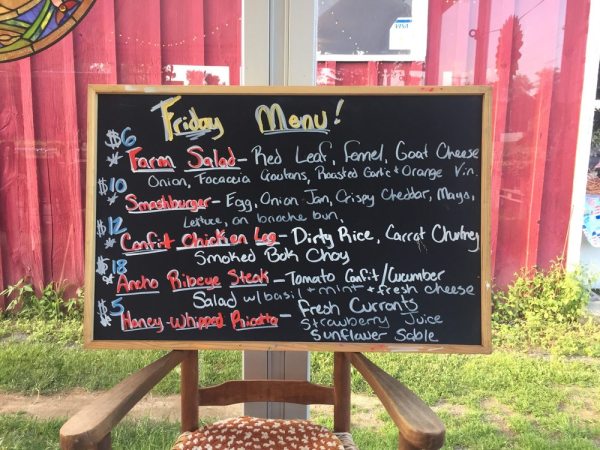 VISA
Friday Menu!
$6
* Farm Salad - Red Leaf, Fennel, Goat Cheese
Onion, Focaccia Croutons, Roasted Garlic + Orange Vin.
$10
* Smashburger - Egg, Onion Jam, Crispy Cheddar, Mayo,
Lettuce, on brioche bun,
$12
* Confit Chicken Leg - Dirty Rice, Carrot Chutney
Smoked Bok Choy
$18
* Ancho Ribeye Steak - Tomato Confit/Cucumber
Salad w/basil + mint + fresh cheese
$5
* Honey-Whipped Ricotta - Fresh Currants
Strawberry Juice
Sunflower Sable